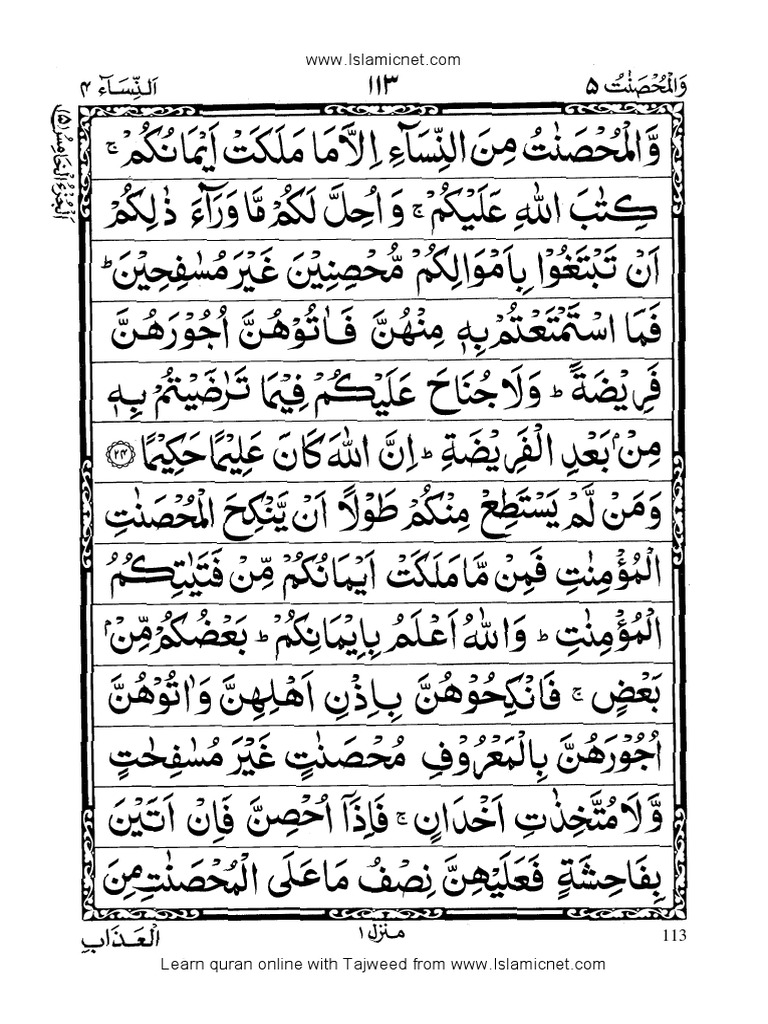 www.Islamicnet.com
وَالْمُحْصَنٰتُ ۵ ۱۱۳ اَلنِّسَآء ۴
اَلْجُزْءُ الْخَامِسُ (۵)
وَّالْمُحْصَنٰتُ مِنَ النِّسَآءِ اِلَّا مَا مَلَكَتْ اَيْمَانُكُمْ ۚ
كِتٰبَ اللّٰهِ عَلَيْكُمْ ۚ وَ اُحِلَّ لَكُمْ مَّا وَرَآءَ ذٰلِكُمْ
اَنْ تَبْتَغُوْا بِاَمْوَالِكُمْ مُّحْصِنِيْنَ غَيْرَ مُسٰفِحِيْنَ ؕ
فَمَا اسْتَمْتَعْتُمْ بِهٖ مِنْهُنَّ فَاٰتُوْهُنَّ اُجُوْرَهُنَّ
فَرِيْضَةً ؕ وَلَا جُنَاحَ عَلَيْكُمْ فِيْمَا تَرٰضَيْتُمْ بِهٖ
مِنْۢ بَعْدِ الْفَرِيْضَةِ ؕ اِنَّ اللّٰهَ كَانَ عَلِيْمًا حَكِيْمًا ﴿۲۴﴾
وَمَنْ لَّمْ يَسْتَطِعْ مِنْكُمْ طَوْلًا اَنْ يَّنْكِحَ الْمُحْصَنٰتِ
الْمُؤْمِنٰتِ فَمِنْ مَّا مَلَكَتْ اَيْمَانُكُمْ مِّنْ فَتَيٰتِكُمُ
الْمُؤْمِنٰتِ ؕ وَاللّٰهُ اَعْلَمُ بِاِيْمَانِكُمْ ؕ بَعْضُكُمْ مِّنْۢ
بَعْضٍ ۚ فَانْكِحُوْهُنَّ بِاِذْنِ اَهْلِهِنَّ وَاٰتُوْهُنَّ
اُجُوْرَهُنَّ بِالْمَعْرُوْفِ مُحْصَنٰتٍ غَيْرَ مُسٰفِحٰتٍ
وَّلَا مُتَّخِذٰتِ اَخْدَانٍ ۚ فَاِذَاۤ اُحْصِنَّ فَاِنْ اَتَيْنَ
بِفَاحِشَةٍ فَعَلَيْهِنَّ نِصْفُ مَا عَلَى الْمُحْصَنٰتِ مِنَ
الْعَذَابِ منزل ۱ 113
Learn quran online with Tajweed from www.Islamicnet.com